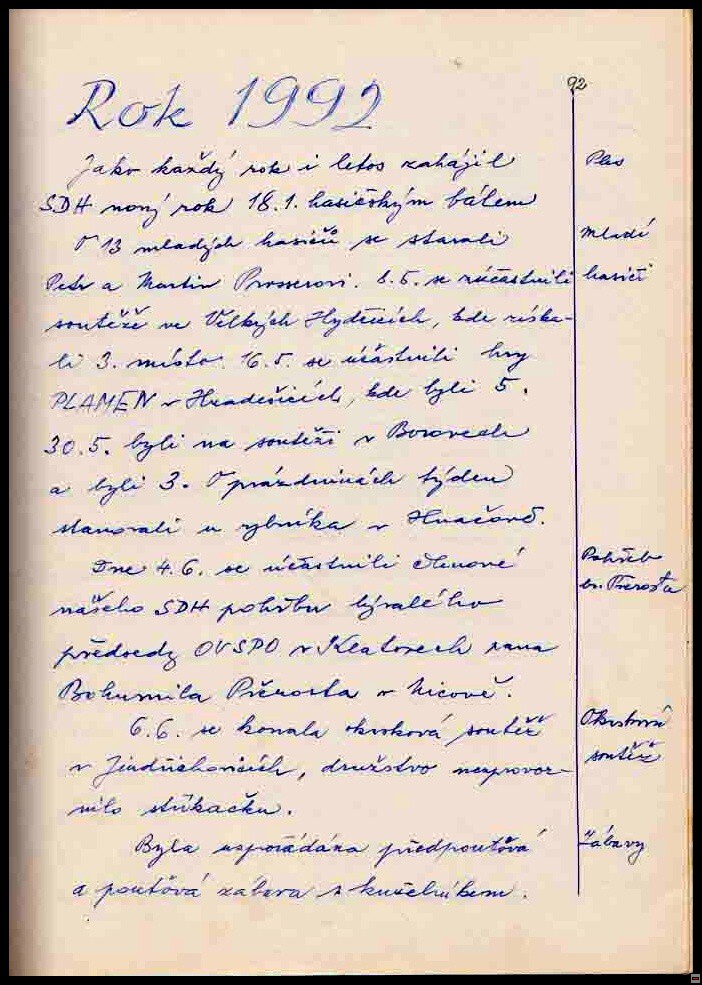 92
Rok 1992
Jako každý rok i letos zahájil
Ples
SDH nový rok 18.1. hasičským bálem
O 13 mladých hasičů se starali
Mladí
Petr a Martin Prosserovi. 8.5. se zúčastnili
hasiči
soutěže ve Velkých Hydčicích, kde získa-
li 3. místo. 16.5. se účastnili hry
PLAMEN v Hradešicích, kde byli 5.
30.5. byli na soutěži v Borovech
a byli 3. O prázdninách týden
stanovali u rybníka v Hnačově.
Dne 4.6. se účastnili členové
Pohřeb
našeho SDH pohřbu bývalého
br. Přerosta
předsedy OVSPO v Klatovech pana
Bohumila Přerosta v Nicově.
6.6. se konala okrsková soutěž
Okrsková
v Jindřichovicích, družstvo nezprovoz-
soutěž
nilo stříkačku.
Byla uspořádána předpouťová
Zábavy
a pouťová zábava s kuželníkem.